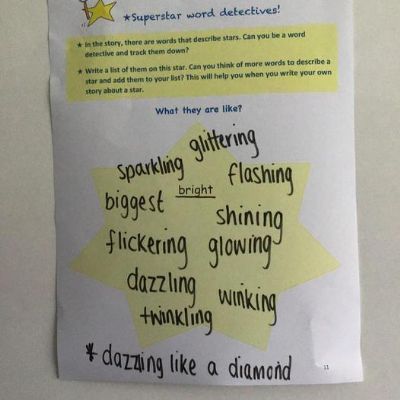 ★Superstar word detectives!
★ In the story, there are words that describe stars. Can you be a word
detective and track them down?
★ Write a list of them on this star. Can you think of more words to describe a
star and add them to your list? This will help you when you write your own
story about a star.
What they are like?
glittering
sparkling flashing
bright
biggest
shining
flickering glowing
dazzling winking
twinkling
* dazzling like a diamond
11